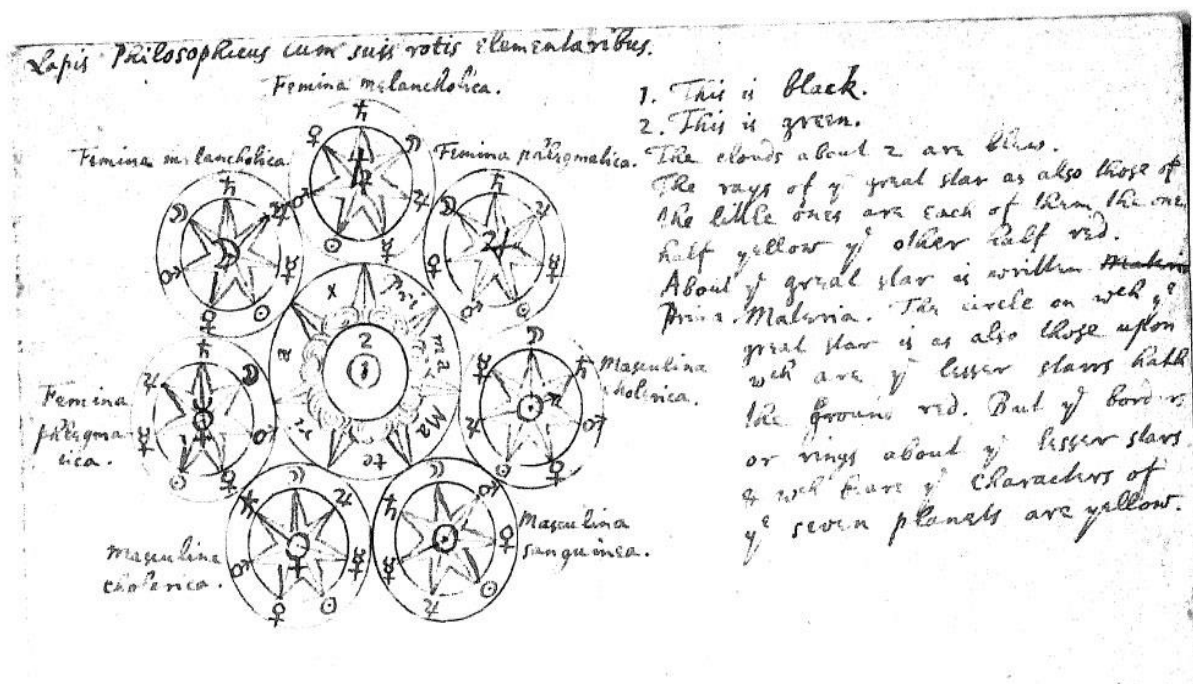 Lapis Philosophicus cum suis rotis elementaribus.
Femina melancholica.
Femina melancholica.
Femina phlegmatica.
Femina
phlegma-
tica.
Masculina
cholerica.
Masculina
cholerica.
Masculina
sanguinea.
Pri
ma
Ma
te
ri
a
X
2
1
1. This is black.
2. This is green.
The clouds about 2 are blew.
The rays of yᵉ great star as also those of
the little ones are each of them the one
half yellow yᵉ other half red.
About yᵉ great star is written Materia
Prima Materia. The circle on wᶜʰ yᵉ
great star is as also those upon
wᶜʰ are yᵉ lesser starrs hath
the ground red. But yᵉ borders
or rings about yᵉ lesser stars
& wᶜʰ beare yᵉ characters of
yᵉ seven planets are yellow.